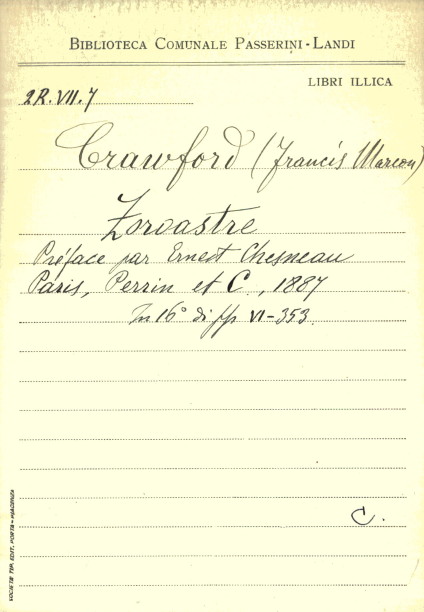 BIBLIOTECA COMUNALE PASSERINI-LANDI
LIBRI ILLICA
2R.VII.7
Crawford (Francis Marion)
Zoroastre
Préface par Ernest Chesneau
Paris, Perrin et C., 1887
In 16° di pp VI-353.
C.
SOCIETÀ TIP. EDIT. PORTA - PIACENZA